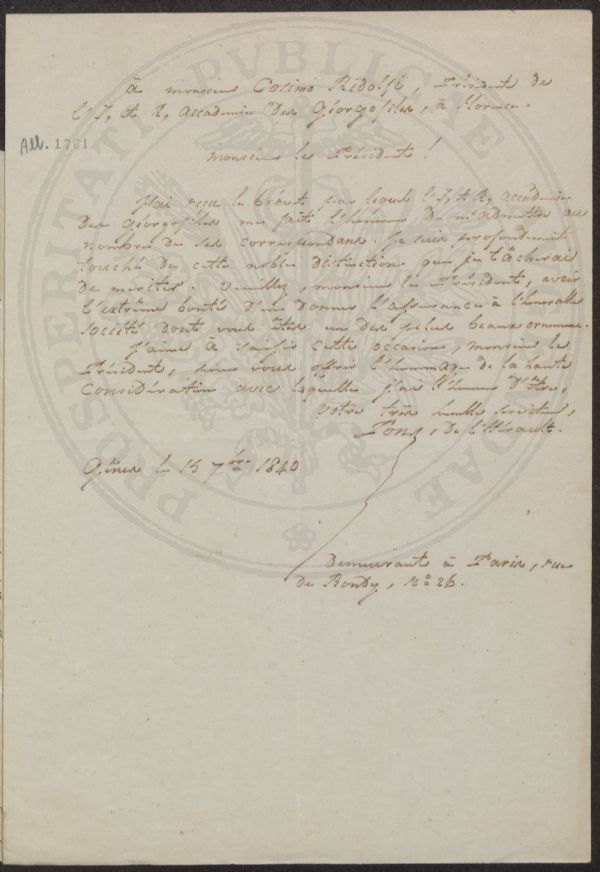 à monsieur Cosimo Ridolfi, Président de
l'I. et R. Accademie des Géorgofiles, à Florence.
All. 1781
monsieur le Président!
J'ai reçu le brévet par lequel l'I. et R. accademie
des géorgofiles me fait l'honneur de m'admettre au
nombre de ses correspondans. Je suis profondement
touché de cette noble distinction que je tâcherai
de meriter. Veuillez, monsieur le Président, avoir
l'extrême bonté d'en donner l'assurance à l'honorable
société dont vous êtes un des plus beaux ornemens.
J'aime à saisir cette occasion, monsieur le
Président, pour vous offrir l'hommage de la haute
considération avec laquelle j'ai l'honneur d'être,
votre très humble serviteur,
Pons, de l'Hérault.
Gênes le 15 7bre 1840
Demeurant à Paris, rue
de Bondy, n° 26.
PROSPERITATI PUBLICAE